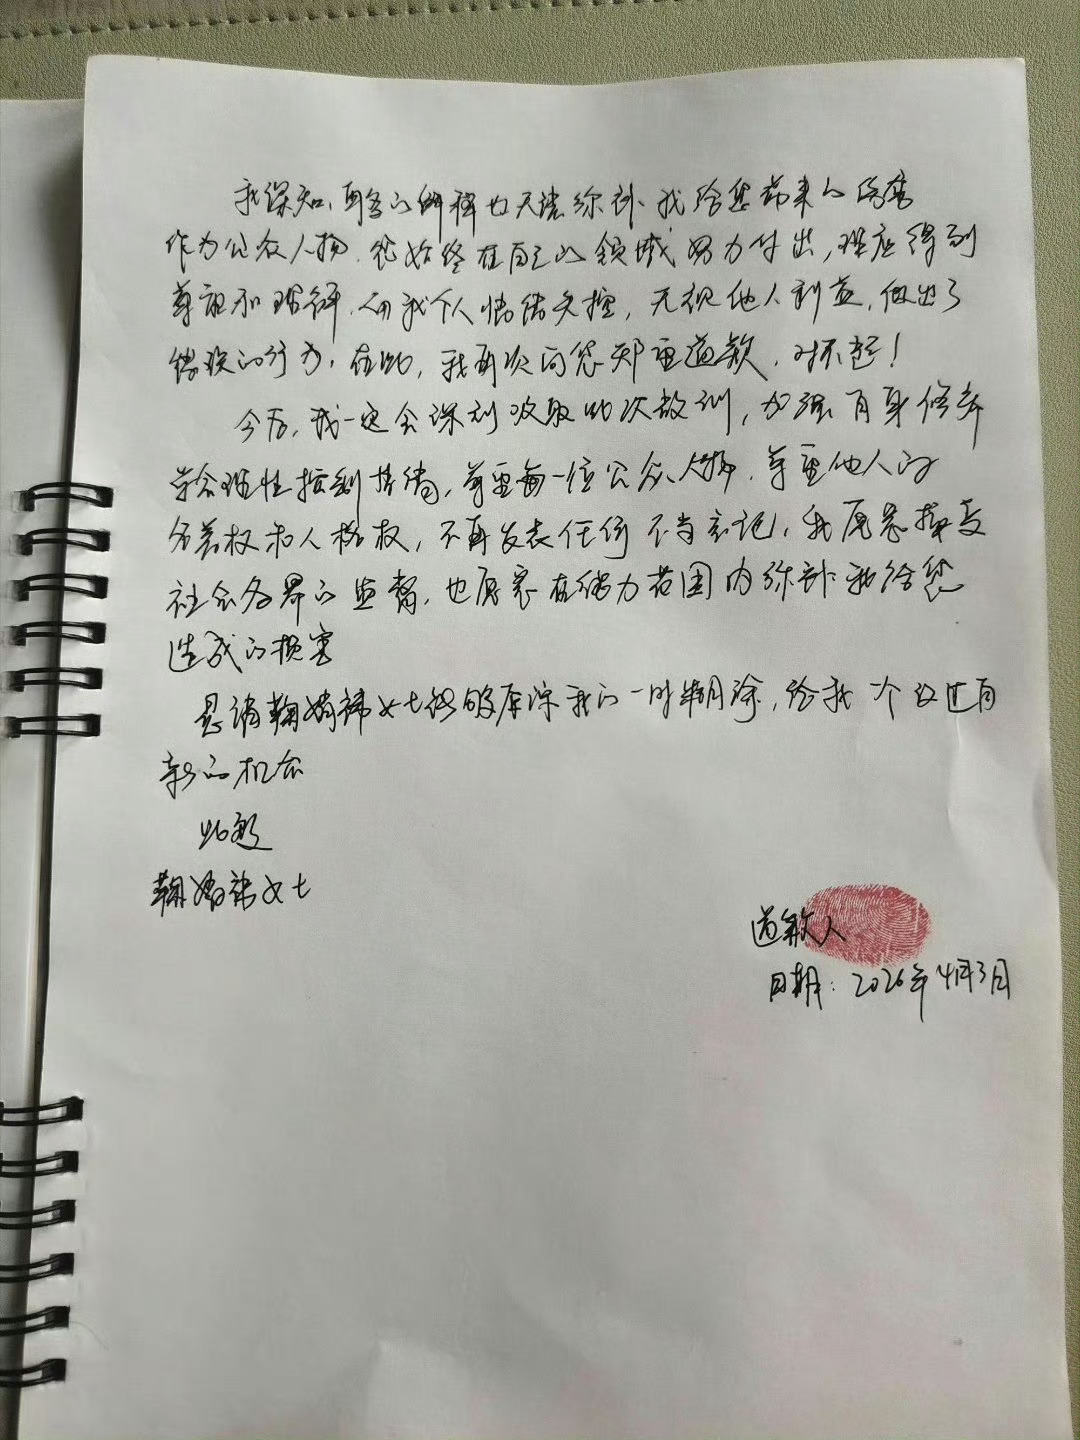 我深知，再多的解释也无法弥补我给您带来的伤害
作为公众人物，您始终在自己的领域努力付出，理应得到
尊重和理解，但我个人情绪失控，无视他人利益，做出了
错误的行为，在此，我再次向您郑重道歉，对不起！
今后，我一定会深刻吸取此次教训，加强自身修养
学会理性控制情绪，尊重每一位公众人物，尊重他人的
名誉权和人格权，不再发表任何不当言论，我愿意接受
社会各界的监督，也愿意在能力范围内弥补我给您
造成的损害
恳请鞠婧祎女士能够原谅我的一时糊涂，给我一个改过自
新的机会
此致
鞠婧祎女士
道歉人
日期：2026年4月3日